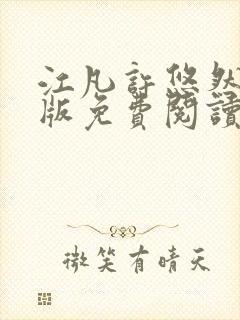 江凡許悠然
版免費閱讀
微笑有晴天